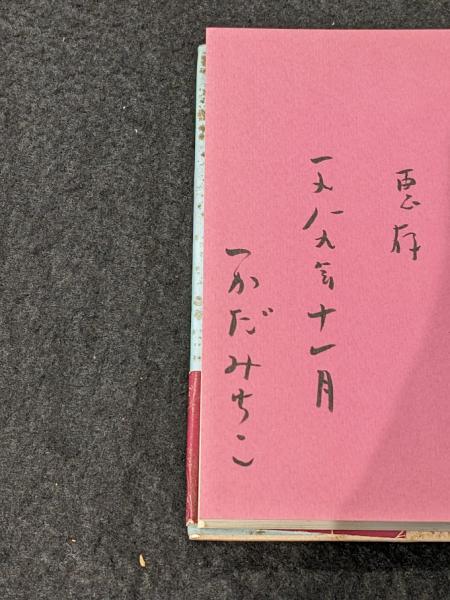 恵存
一九八九年十一月
つかだみちこ